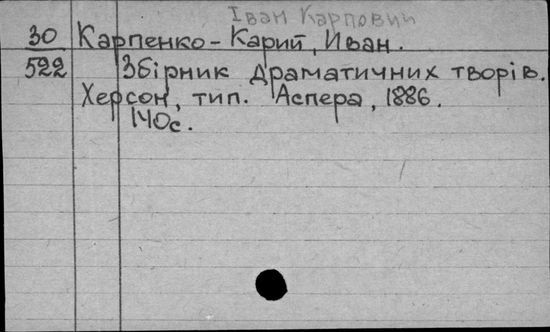 Іван Карпович
30 Карпенко-Карий, Иван.
522 Збірник драматичних творів.
Херсон, тип. Аспера, 1886.
140с.